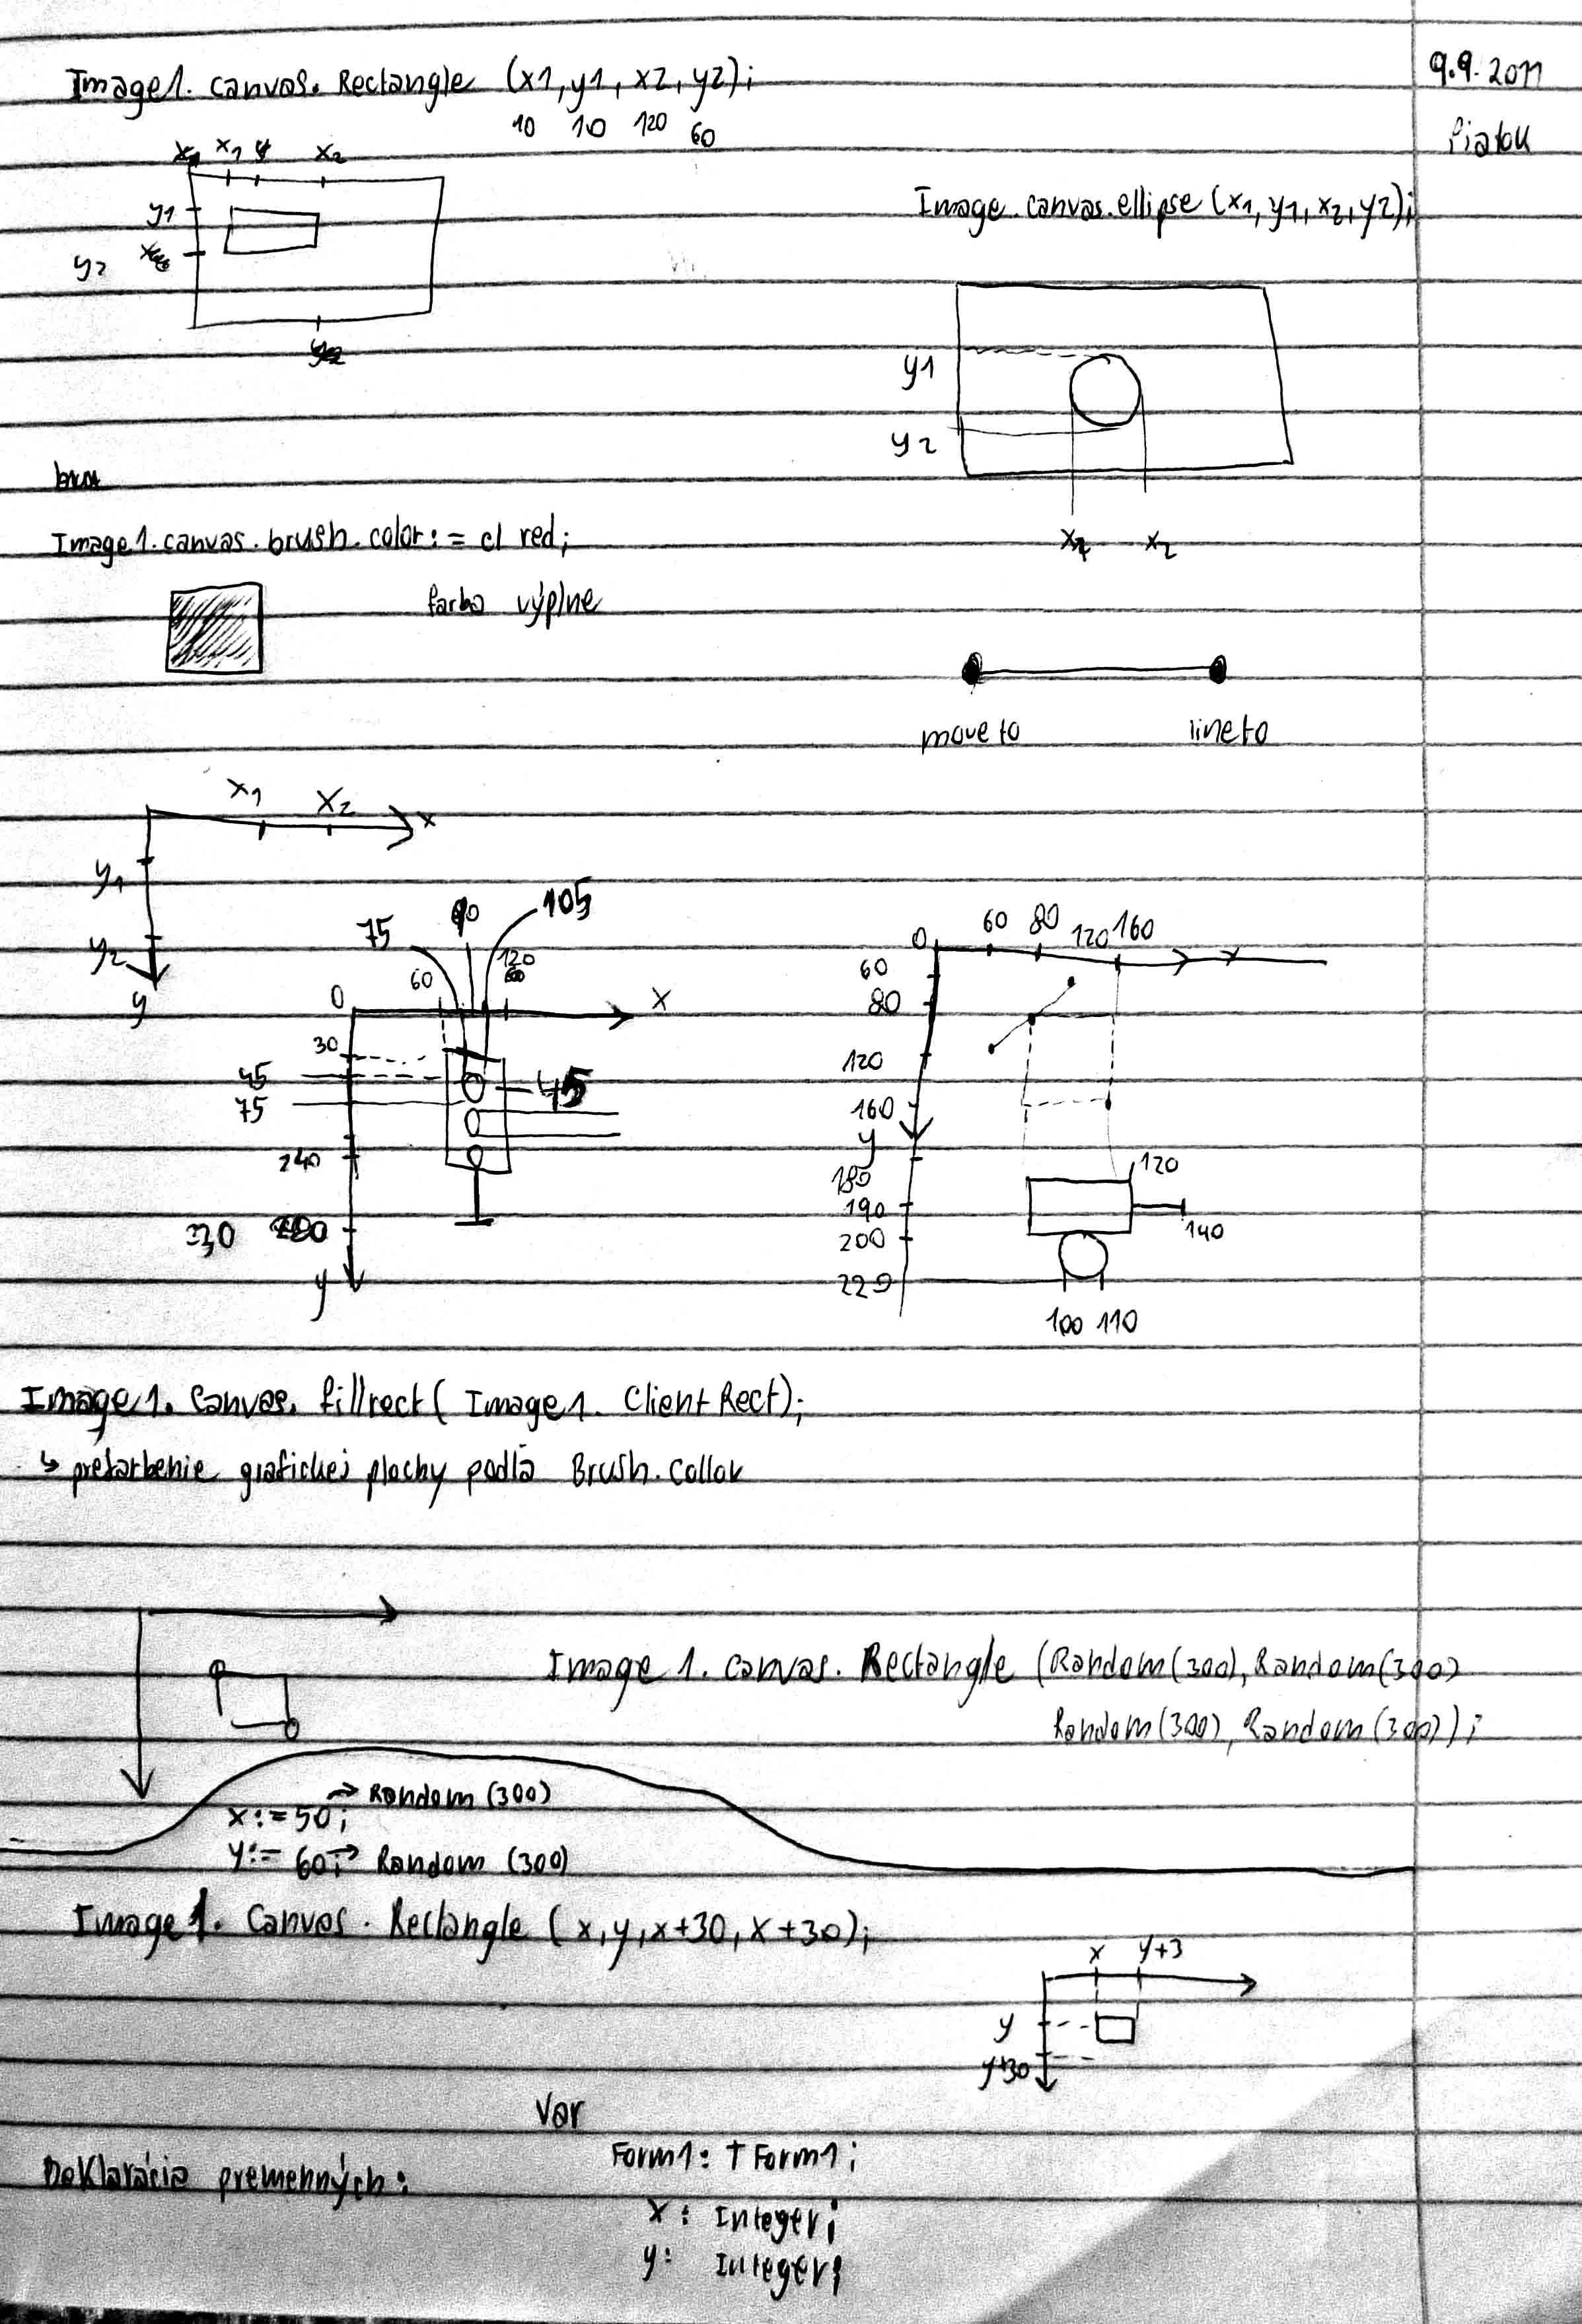 9.9.2011
Piatok
Image1. canvas. Rectangle (x1, y1, x2, y2);
10 10 120 60
x1 x2
y1
y2
Image.canvas.ellipse (x1, y1, x2, y2);
y1
y2
x1 x2
Image1.canvas.brush.color:= cl red;
farba výplne
moveto lineto
x1 x2 x
y1
y2
y
75 90 105
60 120
0 x
30
45 45
75
240
230
y
0 60 80 120 160 x
60
80
120
160
y
180 120
190
200 140
229
100 110
Image1. Canvas. fillrect( Image1. ClientRect);
↳ prefarbenie grafickej plochy podla Brush.Collor
Image 1. canvas. Rectangle (Random(300), Random(300)
Random(300), Random(300));
x:=50; → Random (300)
y:= 60; → Random (300)
Image1. Canvas. Rectangle (x, y, x+30, x+30);
x y+3
y
y+30
Var
Deklarácia premenných:
Form1: TForm1;
x: Integer;
y: Integer;